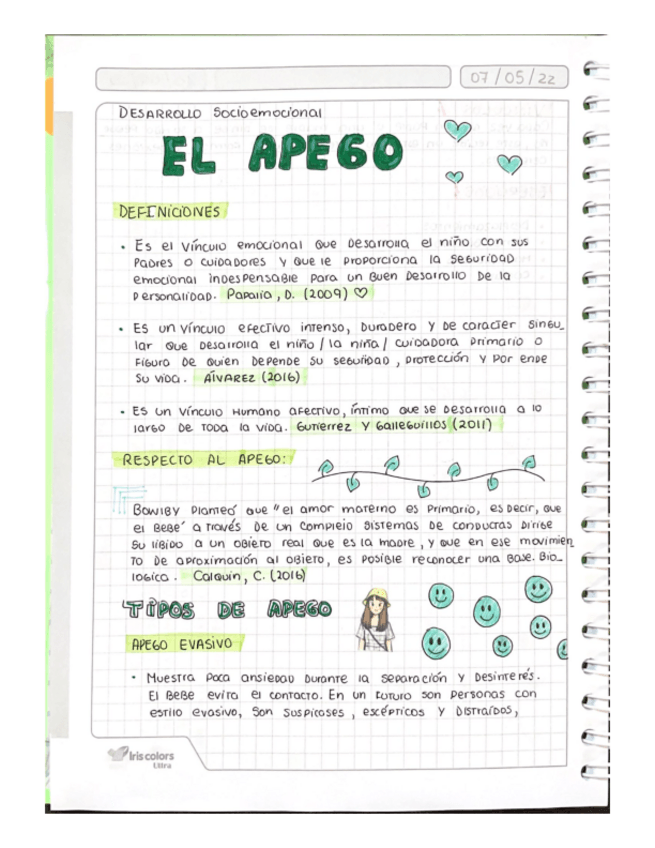 07/05/22
DESARROLLO Socioemocional
EL APEGO
DEFINICIONES
• Es el vínculo emocional que desarrolla el niño con sus
padres o cuidadores y que le proporciona la seguridad
emocional indespensable para un buen desarrollo de la
personalidad. Papalia, D. (2009) ♡
• Es un vínculo efectivo intenso, duradero y de caracter singu_
lar que desarrolla el niño / la niña / cuidadora primario o
figura de quien depende su seguridad, protección y por ende
su vida. ÁLVAREZ (2016)
• Es un vínculo humano afectivo, íntimo que se desarrolla a lo
largo de toda la vida. Gutierrez y Galleguillos (2011)
RESPECTO AL APEGO:
Bowlby planteó que "el amor materno es primario, es decir, que
el bebé a través de un complejo sistemas de conductas dirige
su libido a un objeto real que es la madre, y que en ese movimien
to de aproximación al objeto, es posible reconocer una base. Bio_
logica. Calquin, C. (2016)
TIPOS DE APEGO
APEGO EVASIVO
• Muestra poca ansiedad durante la separación y desinterés.
El bebe evita el contacto. En un futuro son personas con
estilo evasivo, son suspicases, escépticos y distraídos,
Iris colors
Ultra